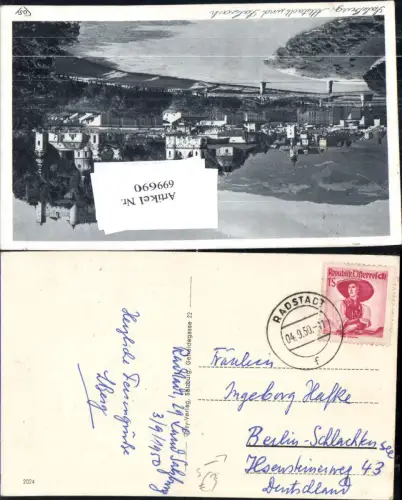 Salzburg, Altstadt und Salzach
Artikel Nr.
699690
Republik Österreich
1S
RADSTADT
04.9.50.-17
f
Fräulein
Ingeborg Hafke
Berlin-Schlachtensee
Ilsensteinerweg 43
Deutschland
Radstadt, Ldg Land Salzburg
3/9/1950
Herzliche Feriengrüße
-Verlag, Salzburg, Getreidegasse 22
2024